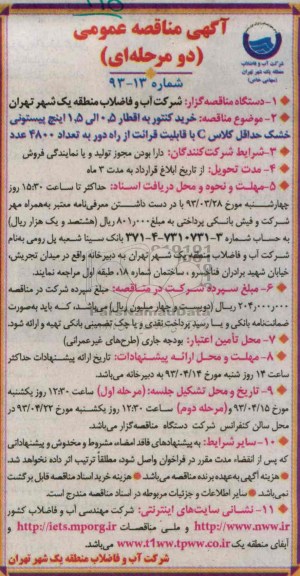 آگهی مناقصه عمومی
(دو مرحله‌ای)
شماره ۱۳-۹۳
شرکت آب و فاضلاب
منطقه یک شهر تهران
(سهامی خاص)
۱- دستگاه مناقصه‌گزار: شرکت آب و فاضلاب منطقه یک شهر تهران
۲- موضوع مناقصه: خرید کنتور به اقطار ۰.۵ الی ۱.۵ اینچ پیستونی
خشک حداقل کلاس C با قابلیت قرائت از راه دور به تعداد ۴۸۰۰ عدد
۳- شرایط شرکت‌کنندگان: دارا بودن مجوز تولید و یا نمایندگی فروش
۴- مدت تحویل: از تاریخ ابلاغ قرارداد به مدت ۳ ماه
۵- مهلت و نحوه و محل دریافت اسناد: حداکثر تا ساعت ۱۵:۳۰ روز
چهارشنبه مورخ ۹۳/۰۳/۲۸ با در دست داشتن معرفی‌نامه معتبر به‌همراه مهر
شرکت و فیش بانکی پرداختی به مبلغ ۸۰۱٫۰۰۰ ریال (هشتصد و یک هزار ریال)
به حساب شماره ۳-۷۳۱۰۷۳۱-۴-۳۷۱ بانک سینا شعبه پل رومی به‌نام
شرکت آب و فاضلاب منطقه یک شهر تهران به دبیرخانه واقع در میدان تجریش،
خیابان شهید برادران فناخسرو، ساختمان شماره ۱۸، طبقه اول مراجعه نمایند.
۶- مبلغ سپرده شرکت در مناقصه: مبلغ سپرده شرکت در مناقصه
۲۰۴٫۰۰۰٫۰۰۰ ریال (دویست و چهار میلیون ریال) می‌باشد، که باید به‌صورت
ضمانت‌نامه بانکی و یا رسید پرداخت نقدی و یا چک تضمینی بانکی تهیه و ارائه شود.
۷- محل تأمین اعتبار: بودجه جاری (طرح‌های غیرعمرانی)
۸- مهلت و محل ارائه پیشنهادات: تاریخ ارائه پیشنهادات حداکثر
ساعت ۱۴ روز شنبه مورخ ۹۳/۰۴/۱۴ به دبیرخانه می‌باشد.
۹- تاریخ و محل تشکیل جلسه: (مرحله اول) ساعت ۱۲:۳۰ روز یکشنبه
مورخ ۹۳/۰۴/۱۵ و (مرحله دوم) ساعت ۱۲:۳۰ روز یکشنبه مورخ ۹۳/۰۴/۲۲ در
محل سالن کنفرانس شرکت دستگاه مناقصه‌گزار می‌باشد.
۱۰- سایر شرایط: به پیشنهادهای فاقد امضاء، مشروط و مخدوش و پیشنهاداتی
که پس از انقضاء مدت مقرر در فراخوان واصل شود، مطلقاً ترتیب اثر داده نخواهد شد.
هزینه آگهی به‌عهده برنده مناقصه می‌باشد. هزینه خرید اسناد مناقصه قابل برگشت
نمی‌باشد. سایر اطلاعات و جزئیات مربوطه در اسناد مناقصه مندرج است.
۱۱- نشانی سایت‌های اینترنتی: شرکت مهندسی آب و فاضلاب کشور
http://www.nww.ir و ملی مناقصات http://iets.mporg.ir و
آبفای منطقه یک www.t1ww.tpww.co.ir می‌باشد.
شرکت آب و فاضلاب منطقه یک شهر تهران